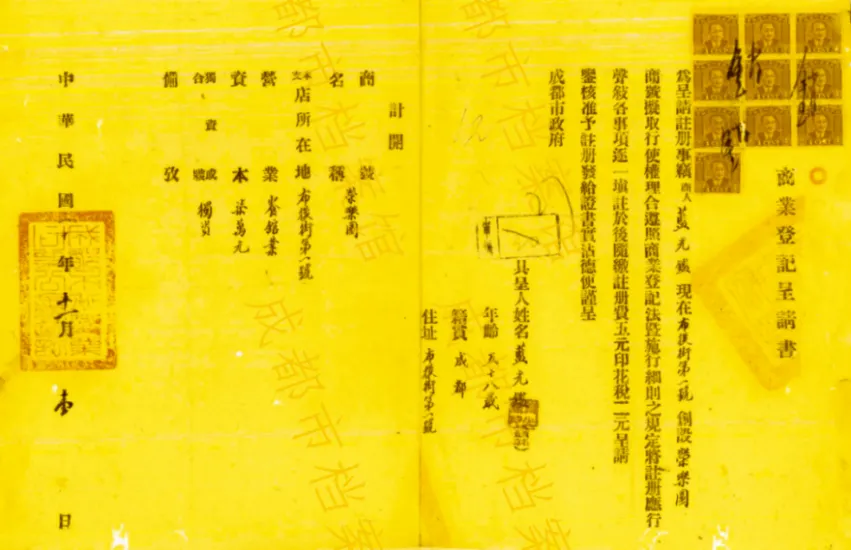 商業登記呈請書
為呈請註册事竊商人藍光鑑現在布後街第一號創設榮樂園
商號擬取行使權理合遵照商業登記法暨施行細則之規定將註册應行
聲敍各事項逐一塡註於後隨繳註册費五元印花稅二元呈請
鑒核准予註册發給證書實沾德便謹呈
成都市政府
具呈人姓名藍光鑑
年齡五十八歲
籍貫成都
住址布後街第一號
計開
商號名稱榮樂園
本支店所在地布後街第一號
營業餐館業
資本柒萬元
獨資或合夥獨資
備攷
中華民國 十年十一月 日
成都市档案馆
成都市档案